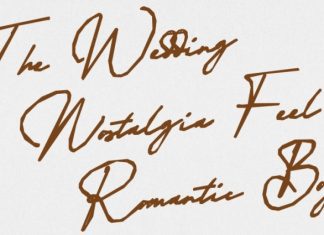 The Wedding
Nostalgia Feel
Romantic